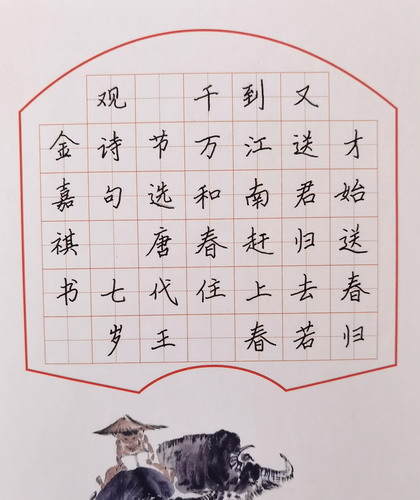 才始送春归
又送君归去若
到江南赶上春
千万和春住
节选唐代王
观诗句 七岁
金嘉祺书